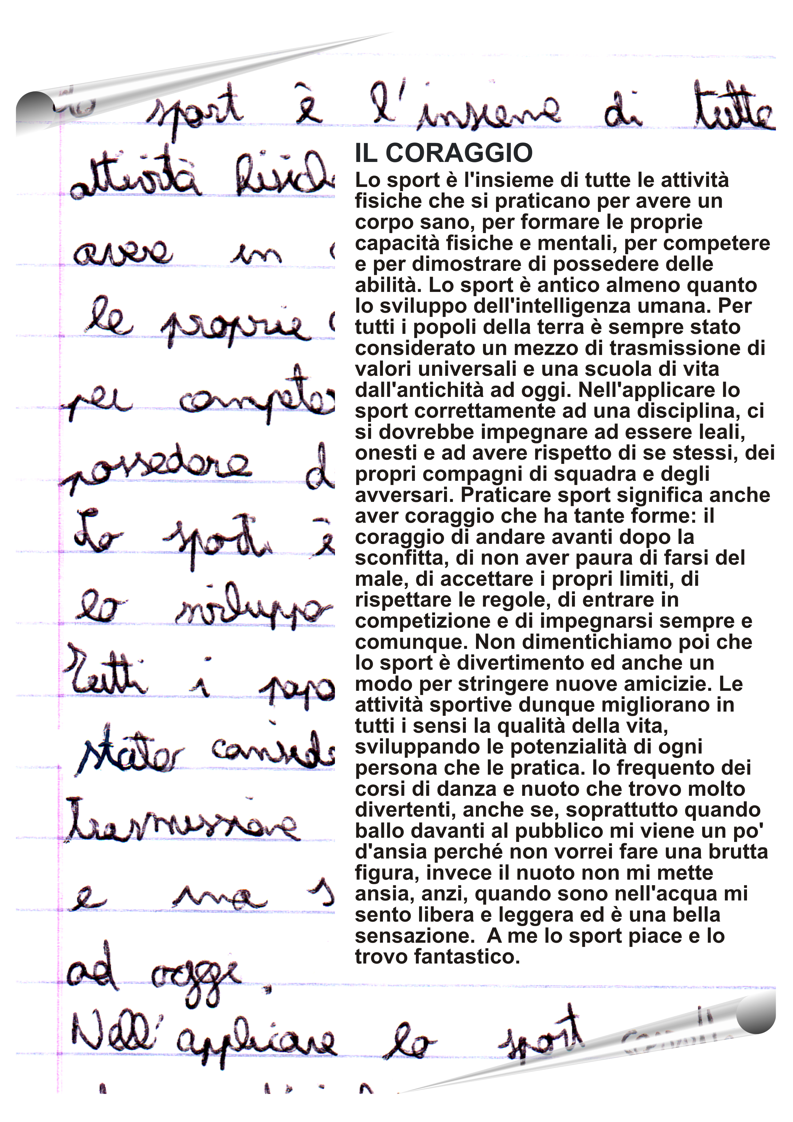 Lo sport è l'insieme di tutte
attività fisiche
avere un
le proprie
per competere
possedere d
Lo sport è
lo sviluppo
Tutti i popo
stato conside
trasmissione
e una s
ad oggi.
Nell'applicare lo sport
IL CORAGGIO
Lo sport è l'insieme di tutte le attività
fisiche che si praticano per avere un
corpo sano, per formare le proprie
capacità fisiche e mentali, per competere
e per dimostrare di possedere delle
abilità. Lo sport è antico almeno quanto
lo sviluppo dell'intelligenza umana. Per
tutti i popoli della terra è sempre stato
considerato un mezzo di trasmissione di
valori universali e una scuola di vita
dall'antichità ad oggi. Nell'applicare lo
sport correttamente ad una disciplina, ci
si dovrebbe impegnare ad essere leali,
onesti e ad avere rispetto di se stessi, dei
propri compagni di squadra e degli
avversari. Praticare sport significa anche
aver coraggio che ha tante forme: il
coraggio di andare avanti dopo la
sconfitta, di non aver paura di farsi del
male, di accettare i propri limiti, di
rispettare le regole, di entrare in
competizione e di impegnarsi sempre e
comunque. Non dimentichiamo poi che
lo sport è divertimento ed anche un
modo per stringere nuove amicizie. Le
attività sportive dunque migliorano in
tutti i sensi la qualità della vita,
sviluppando le potenzialità di ogni
persona che le pratica. Io frequento dei
corsi di danza e nuoto che trovo molto
divertenti, anche se, soprattutto quando
ballo davanti al pubblico mi viene un po'
d'ansia perché non vorrei fare una brutta
figura, invece il nuoto non mi mette
ansia, anzi, quando sono nell'acqua mi
sento libera e leggera ed è una bella
sensazione.  A me lo sport piace e lo
trovo fantastico.